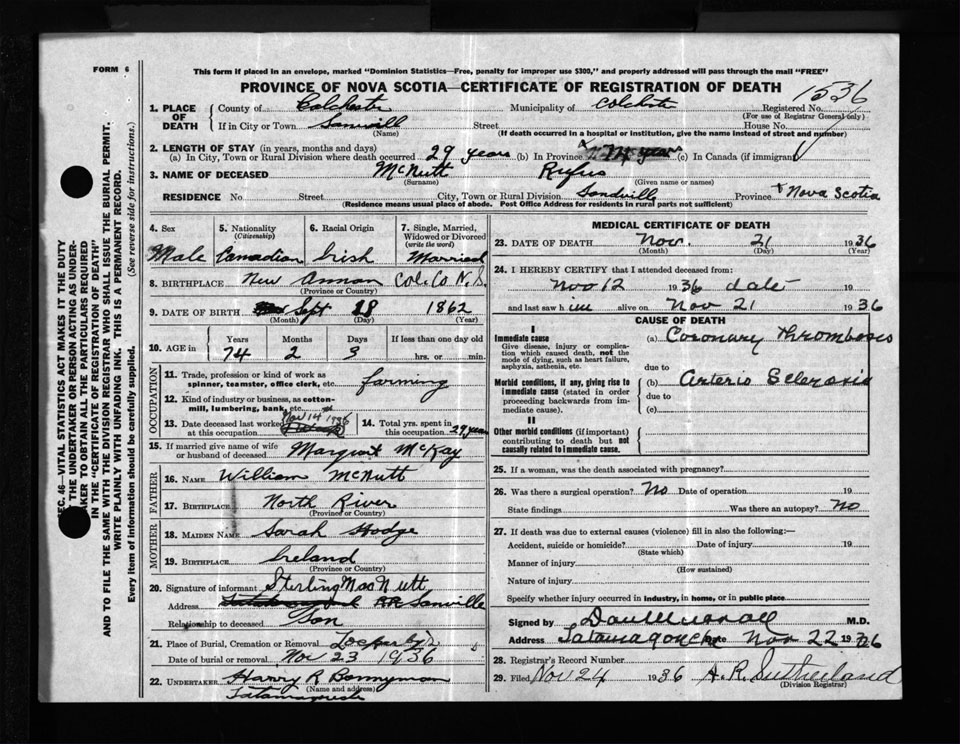 FORM 6
This form if placed in an envelope, marked "Dominion Statistics—Free, penalty for improper use $300," and properly addressed will pass through the mail "FREE"
PROVINCE OF NOVA SCOTIA—CERTIFICATE OF REGISTRATION OF DEATH
1536
1. PLACE OF DEATH
County of Colchester Municipality of Colchester Registered No.
(For use of Registrar General only)
If in City or Town Street House No.
(Name) (If death occurred in a hospital or institution, give the name instead of street and number)
2. LENGTH OF STAY (in years, months and days)
(a) In City, Town or Rural Division where death occurred 29 years (b) In Province (c) In Canada (if immigrant)
3. NAME OF DECEASED McNutt Rufus
(Surname) (Given name or names)
RESIDENCE No. Street City, Town or Rural Division Sandville Province Nova Scotia
(Residence means usual place of abode. Post Office Address for residents in rural parts not sufficient)
4. Sex Male
5. Nationality (Citizenship) Canadian
6. Racial Origin Irish
7. Single, Married, Widowed or Divorced (write the word) Married
8. BIRTHPLACE New Annan Col. Co N.S.
(Province or Country)
9. DATE OF BIRTH Sept 18 1862
(Month) (Day) (Year)
10. AGE in Years 74 Months 2 Days 3 If less than one day old hrs. or min.
OCCUPATION
11. Trade, profession or kind of work as spinner, teamster, office clerk, etc. farming
12. Kind of industry or business, as cotton-mill, lumbering, bank, etc.
13. Date deceased last worked at this occupation Nov 14th 1936
14. Total yrs. spent in this occupation 29 years
15. If married give name of wife or husband of deceased Margret McKay
FATHER
16. NAME William McNutt
17. BIRTHPLACE North River
(Province or Country)
MOTHER
18. MAIDEN NAME Sarah Hodge
19. BIRTHPLACE Ireland
(Province or Country)
20. Signature of informant Sterling MacNutt
Address RR
Relationship to deceased Son
21. Place of Burial, Cremation or Removal Lockerby
Date of burial or removal Nov 23 1936
22. UNDERTAKER Harry R Bonnyman
(Name and address)
Tatamagouche
MEDICAL CERTIFICATE OF DEATH
23. DATE OF DEATH Nov. 21 1936
(Month) (Day) (Year)
24. I HEREBY CERTIFY that I attended deceased from:
Nov 12 1936 date 19
and last saw him alive on Nov 21 1936
CAUSE OF DEATH
I
Immediate cause
Give disease, injury or complication which caused death, not the mode of dying, such as heart failure, asphyxia, asthenia, etc.
(a) Coronary Thrombosis
due to
Morbid conditions, if any, giving rise to immediate cause (stated in order proceeding backwards from immediate cause).
(b) Arterio Sclerosis
due to
(c)
II
Other morbid conditions (if important) contributing to death but not causally related to immediate cause.
25. If a woman, was the death associated with pregnancy?
26. Was there a surgical operation? No Date of operation 19
State findings Was there an autopsy? No
27. If death was due to external causes (violence) fill in also the following:—
Accident, suicide or homicide? Date of injury 19
(State which)
Manner of injury
(How sustained)
Nature of injury
Specify whether injury occurred in industry, in home, or in public place
Signed by M.D.
Address Tatamagouche Date Nov 22 1936
28. Registrar's Record Number
29. Filed Nov 24 1936 A. R. Sutherland
(Division Registrar)
SEC. 46—VITAL STATISTICS ACT MAKES IT THE DUTY
OF THE UNDERTAKER OR PERSON ACTING AS UNDER-
TAKER TO OBTAIN ALL THE PARTICULARS REQUIRED
IN THE "CERTIFICATE OF REGISTRATION OF DEATH"
AND TO FILE THE SAME WITH THE DIVISION REGISTRAR WHO SHALL ISSUE THE BURIAL PERMIT.
WRITE PLAINLY WITH UNFADING INK. THIS IS A PERMANENT RECORD.
Every item of information should be carefully supplied. (See reverse side for instructions.)